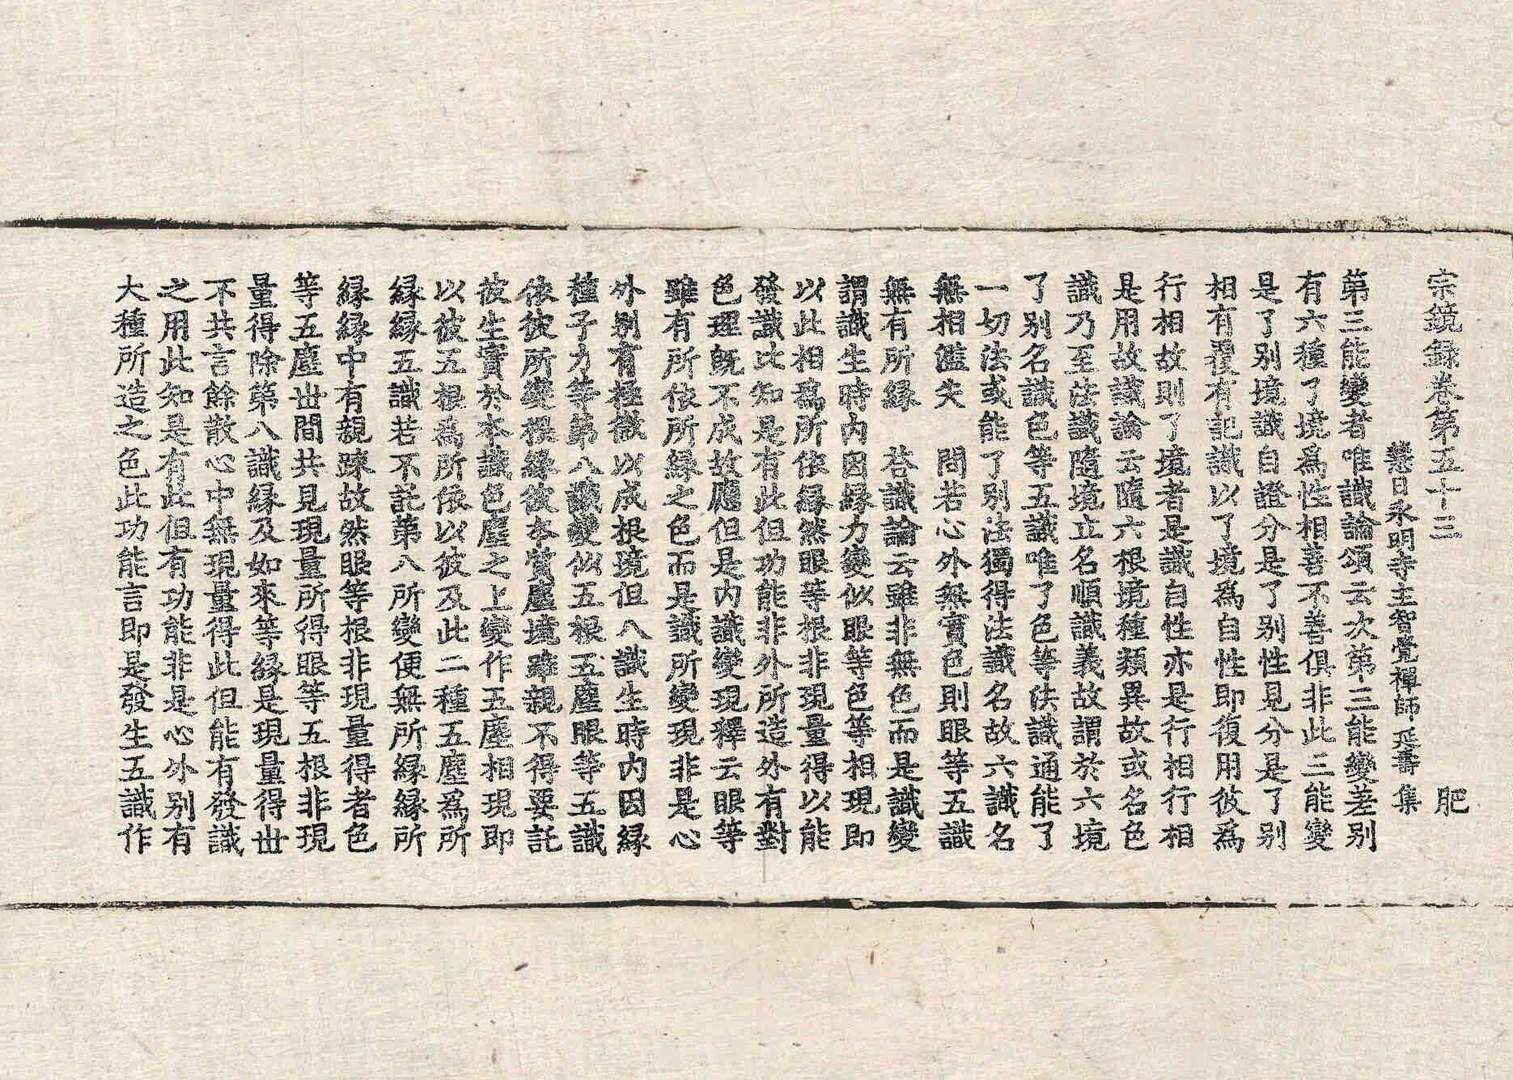 宗鏡録卷第五十三　肥
慧日永明寺主智覺禪師延壽集
第三能變者唯識論頌云次第三能變差别
有六種了境爲性相善不善俱非此三能變
是了别境識自證分是了别性見分是了别
相有覆有記識以了境爲自性即復用彼爲
行相故則了境者是識自性亦是行相行相
是用故識論云隨六根境種類異故或名色
識乃至法識隨境立名順識義故謂於六境
了别名識色等五識唯了色等法識通能了
一切法或能了别法獨得法識名故六識名
無相濫失　問若心外無實色則眼等五識
無有所縁　荅識論云雖非無色而是識變
謂識生時内因縁力變似眼等色等相現即
以此相爲所依縁然眼等根非現量得以能
發識比知是有此但功能非外所造外有對
色理旣不成故應但是内識變現釋云眼等
雖有所依所縁之色而是識所變現非是心
外别有極微以成根境但八識生時内因縁
種子力等第八識變似五根五塵眼等五識
依彼所變根縁彼本質塵境雖親不得要託
彼生實於本識色塵之上變作五塵相現即
以彼五根爲所依以彼及此二種五塵爲所
縁縁五識若不託第八所變便無所縁縁所
縁縁中有親踈故然眼等根非現量得者色
等五塵丗間共見現量所得眼等五根非現
量得除第八識縁及如來等縁是現量得丗
不共言餘散心中無現量得此但能有發識
之用此知是有此但有功能非是心外别有
大種所造之色此功能言即是發生五識作